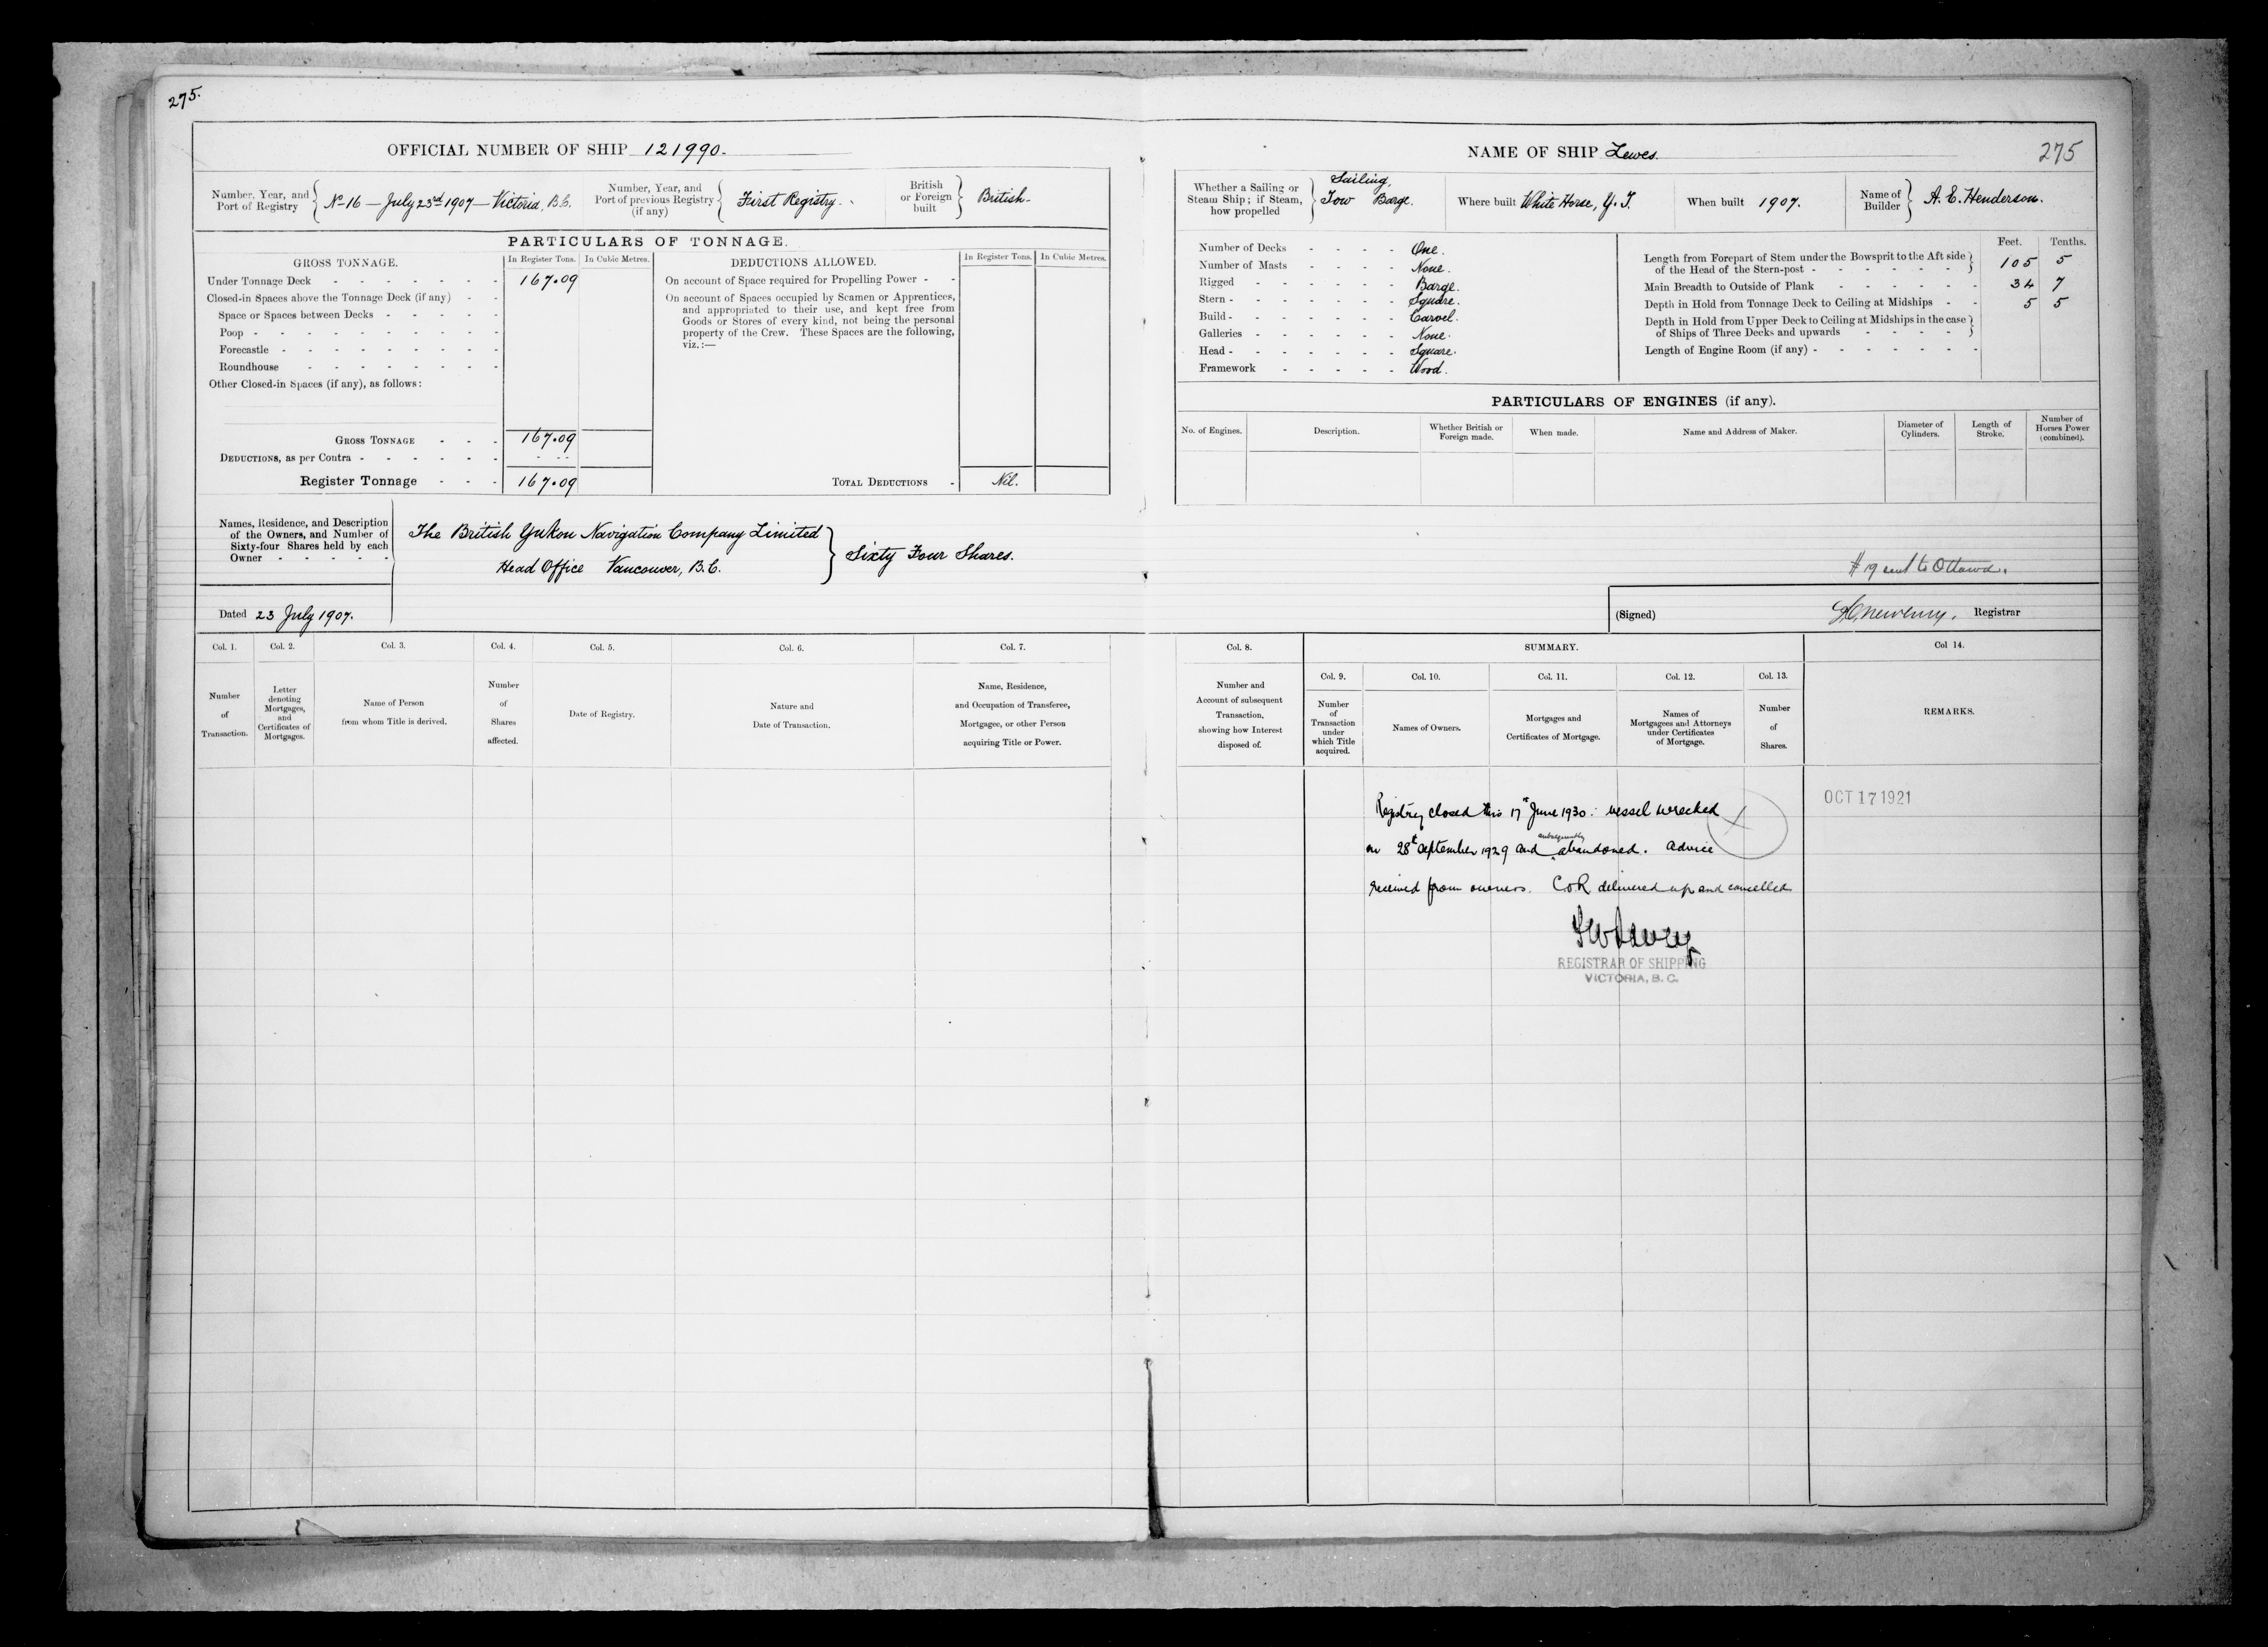 275.
OFFICIAL NUMBER OF SHIP 121990.
Number, Year, and Port of Registry
No 16 — July 23rd 1907 — Victoria, B.C.
Number, Year, and Port of previous Registry (if any)
First Registry.
British or Foreign built
British
PARTICULARS OF TONNAGE.
GROSS TONNAGE.
In Register Tons.
In Cubic Metres.
Under Tonnage Deck 167.09
Closed-in Spaces above the Tonnage Deck (if any)
Space or Spaces between Decks
Poop
Forecastle
Roundhouse
Other Closed-in Spaces (if any), as follows:
GROSS TONNAGE 167.09
DEDUCTIONS, as per Contra
Register Tonnage 167.09
DEDUCTIONS ALLOWED.
In Register Tons.
In Cubic Metres.
On account of Space required for Propelling Power
On account of Spaces occupied by Seamen or Apprentices,
and appropriated to their use, and kept free from
Goods or Stores of every kind, not being the personal
property of the Crew. These Spaces are the following,
viz.:—
TOTAL DEDUCTIONS Nil.
Names, Residence, and Description
of the Owners, and Number of
Sixty-four Shares held by each
Owner
The British Yukon Navigation Company Limited
Head Office Vancouver, B.C.
Sixty Four Shares.
Dated 23 July 1907.
NAME OF SHIP Lewes.
275
Whether a Sailing or Steam Ship; if Steam, how propelled
Sailing,
Tow Barge.
Where built White Horse, Y.T.
When built 1907.
Name of Builder
A. E. Henderson.
Number of Decks One.
Number of Masts None.
Rigged Barge.
Stern Square.
Build Carvel.
Galleries None.
Head Square.
Framework Wood.
Feet.
Tenths.
Length from Forepart of Stem under the Bowsprit to the Aft side
of the Head of the Stern-post 105 5
Main Breadth to Outside of Plank 34 7
Depth in Hold from Tonnage Deck to Ceiling at Midships 5 5
Depth in Hold from Upper Deck to Ceiling at Midships in the case
of Ships of Three Decks and upwards
Length of Engine Room (if any)
PARTICULARS OF ENGINES (if any).
No. of Engines.
Description.
Whether British or Foreign made.
When made.
Name and Address of Maker.
Diameter of Cylinders.
Length of Stroke.
Number of Horses Power (combined).
# 19 sent to Ottawa.
(Signed) Registrar
Col. 1.
Col. 2.
Col. 3.
Col. 4.
Col. 5.
Col. 6.
Col. 7.
Col. 8.
SUMMARY.
Col 14.
Col. 9.
Col. 10.
Col. 11.
Col. 12.
Col. 13.
Number of Transaction.
Letter denoting Mortgages, and Certificates of Mortgages.
Name of Person from whom Title is derived.
Number of Shares affected.
Date of Registry.
Nature and Date of Transaction.
Name, Residence, and Occupation of Transferee, Mortgagee, or other Person acquiring Title or Power.
Number and Account of subsequent Transaction, showing how Interest disposed of.
Number of Transaction under which Title acquired.
Names of Owners.
Mortgages and Certificates of Mortgage.
Names of Mortgagees and Attorneys under Certificates of Mortgage.
Number of Shares.
REMARKS.
OCT 17 1921
Registry closed this 17th June 1930: vessel wrecked
on 28th September 1929 and subsequently abandoned. Advice
received from owners. C of R delivered up and cancelled
REGISTRAR OF SHIPPING
VICTORIA, B. C.